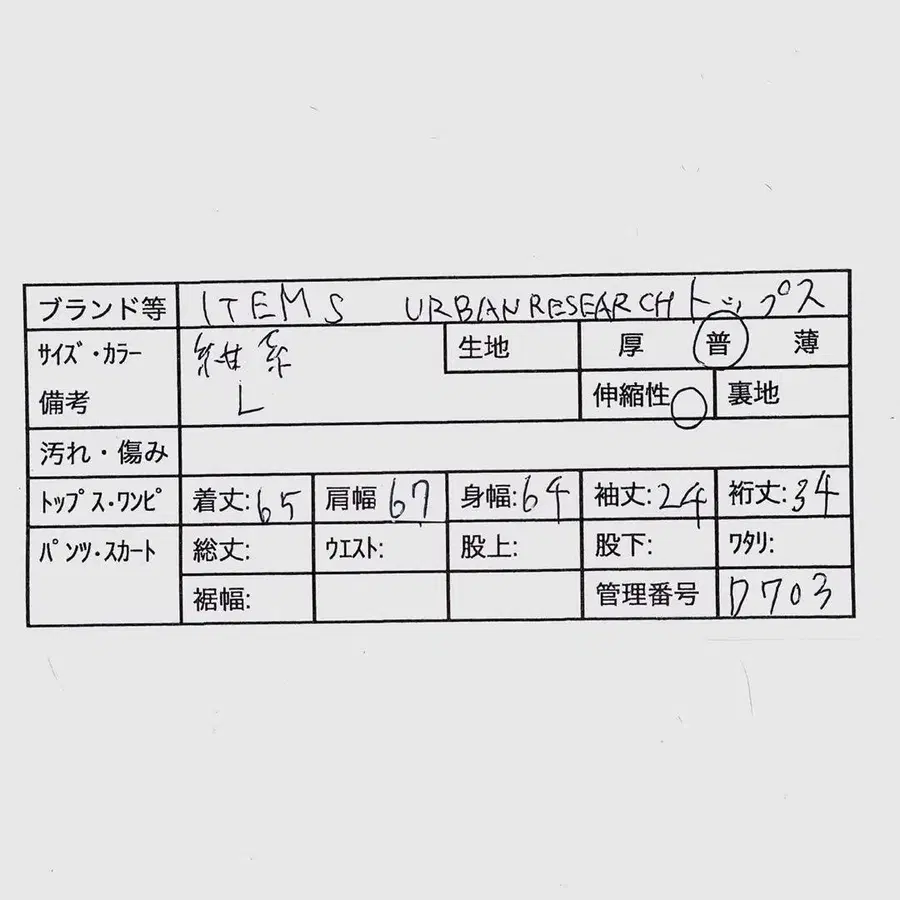 ブランド等 ITEMS URBANRESEARCHトップス
サイズ・カラー 紺系 生地 厚 普 薄
備考 L 伸縮性 ○ 裏地
汚れ・傷み
トップス・ワンピ 着丈:65 肩幅 67 身幅:64 袖丈:24 裄丈:34
パンツ・スカート 総丈: ウエスト: 股上: 股下: ワタリ:
裾幅: 管理番号 D703